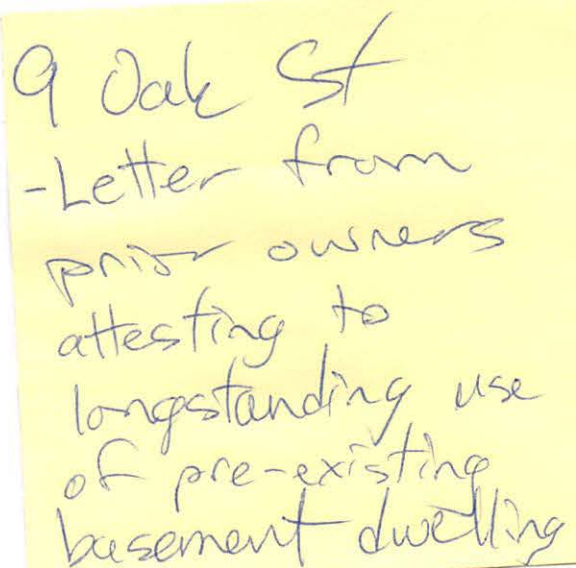 9 Oak St
-Letter from
prior owners
attesting to
longstanding use
of pre-existing
basement dwelling